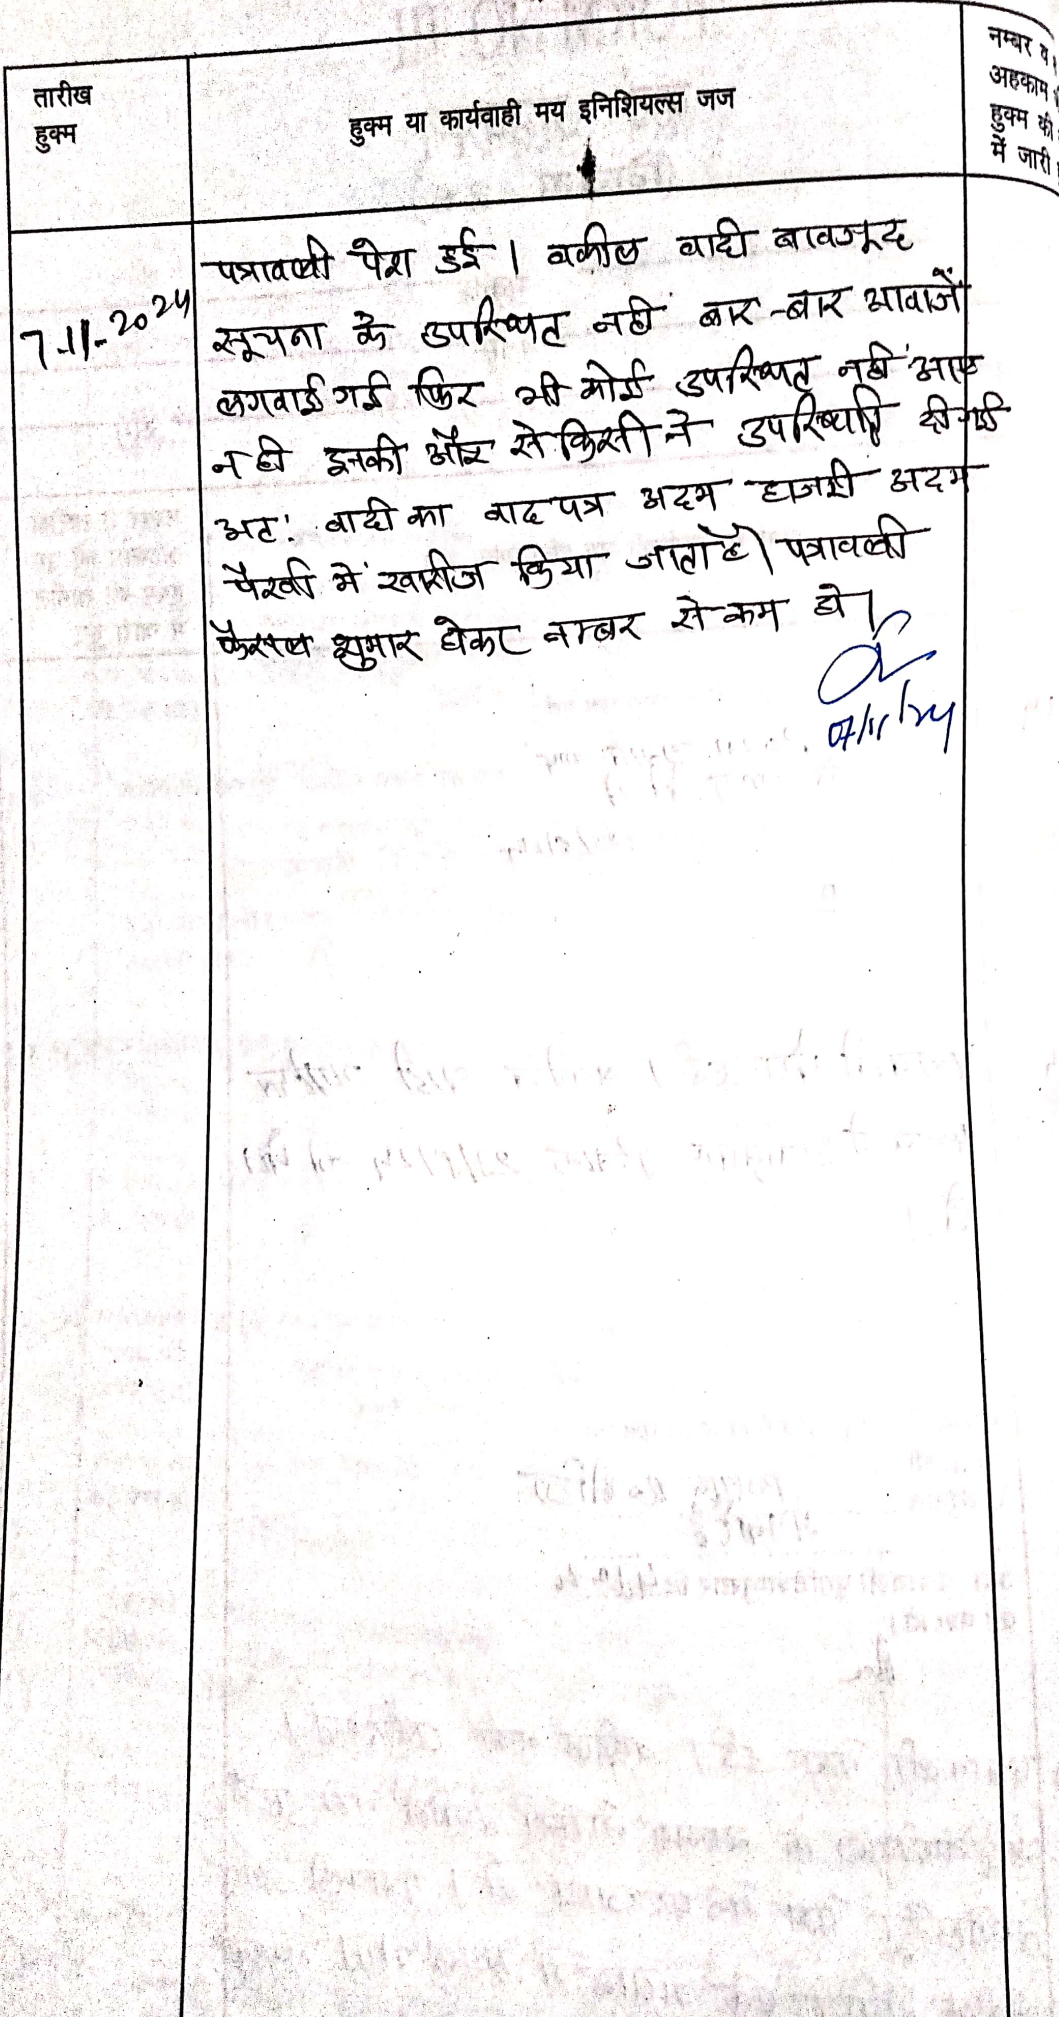 तारीख
हुक्म
हुक्म या कार्यवाही मय इनिशियल्स जज
नम्बर व
अहकाम
हुक्म की
में जारी
7-11-2024
पत्रावली पेश हुई । वकील वादी बावजूद
सूचना के उपस्थित नहीं बार-बार आवाजें
लगवाई गई फिर भी कोई उपस्थित नहीं आए
न ही इनकी और से किसी ने उपस्थिति दी गई
अतः वादी का वाद पत्र अदम हाजरी अदम
पैरवी में खारीज किया जाता है। पत्रावली
फैसल शुमार होकर नम्बर से कम हो।
07/11/24